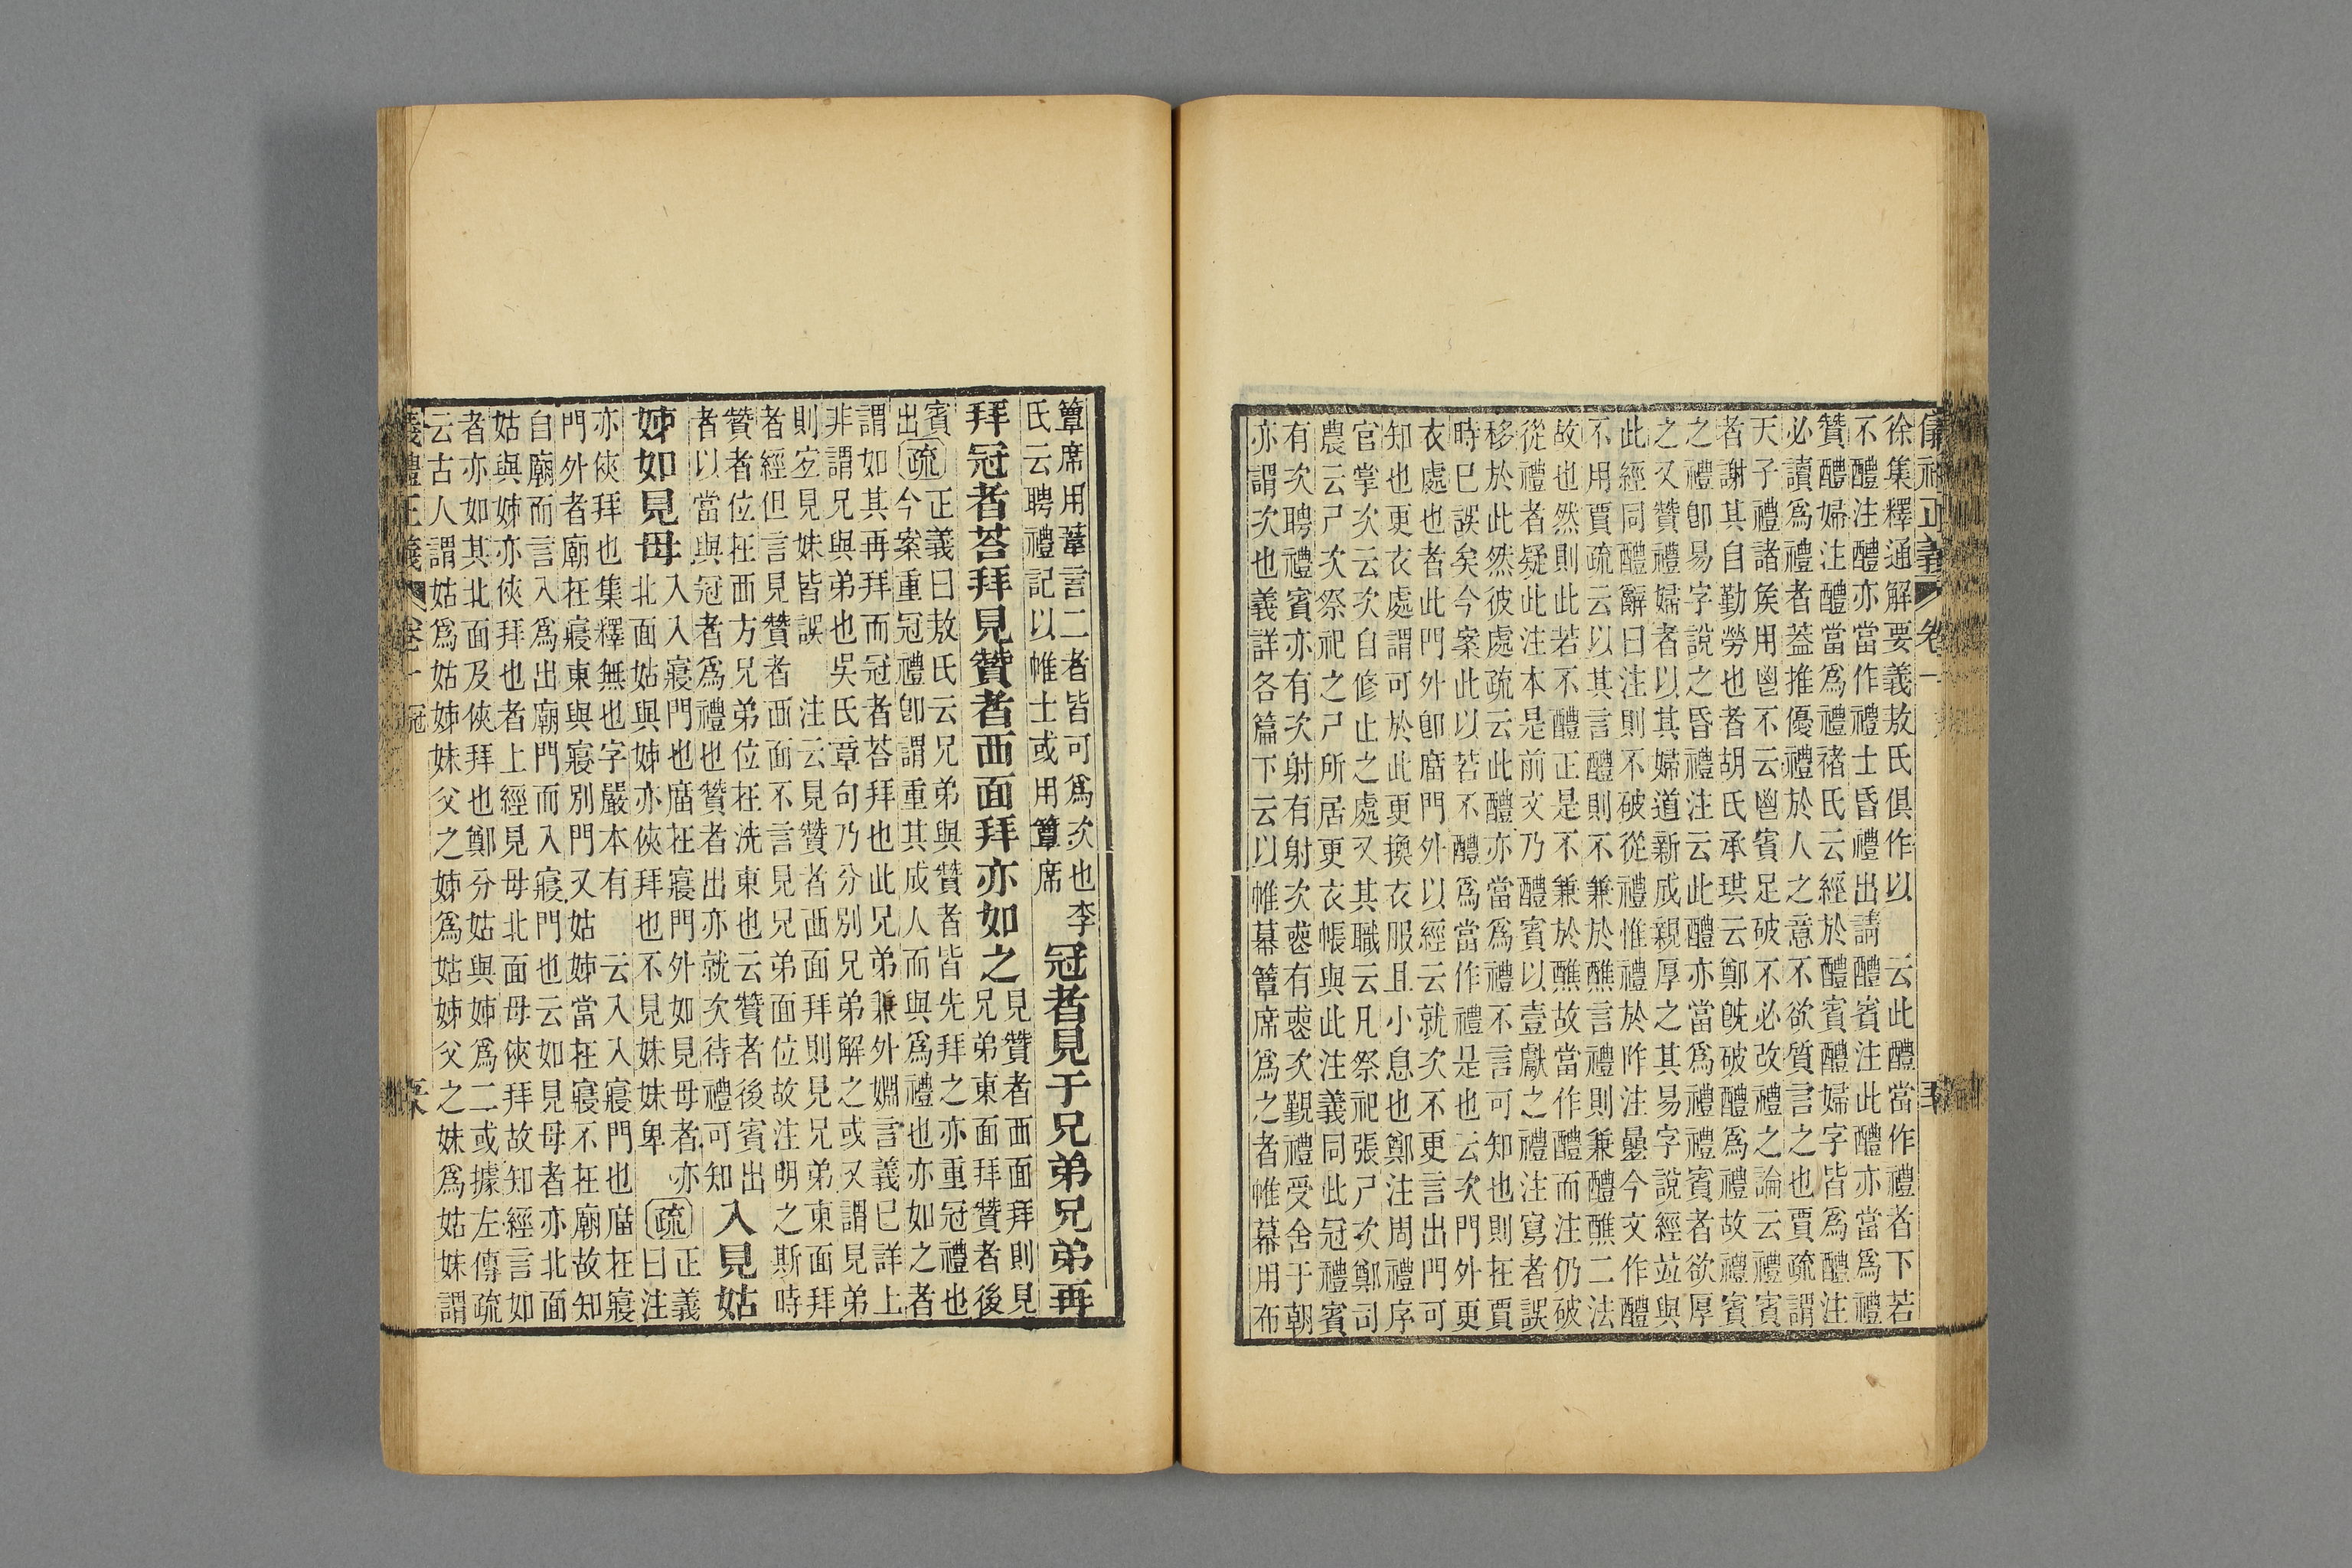 儀禮正義 卷一
徐集釋通解要義敖氏俱作以　云此醴當作禮者下若
不醴注醴亦當作禮士昏禮出請醴賓注此醴亦當爲禮
贊醴婦注醴當爲禮褚氏云經於醴賓醴婦字皆爲醴注
必讀爲禮者葢推優禮於人之意不欲質言之也賈疏謂
天子禮諸矦用鬯不云鬯賓足破不必改禮之論云禮賓
者謝其自勤勞也者胡氏承珙云鄭旣破醴爲禮故禮賓
之禮卽易字說之昏禮注云此醴亦當爲禮禮賓者欲厚
之又贊禮婦者以其婦道新成親厚之其易字說經竝與
此經同醴辭曰注則不破從禮惟禮於阼注曡今文作醴
不用賈疏云以其言醴則不兼於醮言禮則兼醴醮二法
故也然則此若不醴正是不兼於醮故當作醴而注仍破
從禮者疑此注本是前文乃醴賓以壹獻之禮注寫者誤
移於此然彼處疏云此醴亦當爲禮不言可知也則在賈
時已誤矣今案此以若不醴爲當作禮是也云次門外更
衣處也者此門外卽庿門外以經云就次不更言出門可
知也更衣處謂可於此更換衣服且小息也鄭注周禮序
官掌次云次自修止之處又其職云凡祭祀張尸次鄭司
農云尸次祭祀之尸所居更衣帳與此注義同此冠禮賓
有次聘禮賓亦有次射有射次喪有喪次覲禮受舍于朝
亦謂次也義詳各篇下云以帷幕簟席爲之者帷幕用布
簟席用葦言二者皆可爲次也李
氏云聘禮記以帷士或用簟席
冠者見于兄弟兄弟再
拜冠者荅拜見贊者西面拜亦如之
見贊者西面拜則見
兄弟東面拜贊者後
賓
出
疏
正義曰敖氏云兄弟與贊者皆先拜之亦重冠禮也
今案重冠禮卽謂重其成人而與爲禮也亦如之者
謂如其再拜而冠者荅拜也此兄弟兼外婣言義已詳上
非謂兄與弟也吳氏章句乃分別兄弟解之或又謂見弟
則宐見妹皆誤　注云見贊者西面拜則見兄弟東面拜
者經但言見贊者西面不言見兄弟面位故注明之斯時
贊者位在西方兄弟位在洗東也云贊者後賓出
者以當與冠者爲禮也贊者出亦就次待禮可知
入見姑
姊如見母
入入寢門也庿在寢門外如見母者亦
北面姑與姊亦俠拜也不見妹妹卑
疏
正義
曰注
亦俠拜也集釋無也字嚴本有　云入入寢門也庿在寢
門外者廟在寢東與寢別門又姑姊當在寢不在廟故知
自廟而言入爲出廟門而入寢門也云如見母者亦北面
姑與姊亦俠拜也者上經見母北面母俠拜故知經言如
者亦如其北面及俠拜也鄭分姑與姊爲二或據左傳疏
云古人謂姑爲姑姊妹父之姊爲姑姊父之妹爲姑妹謂
義禮正義 卷一 冠